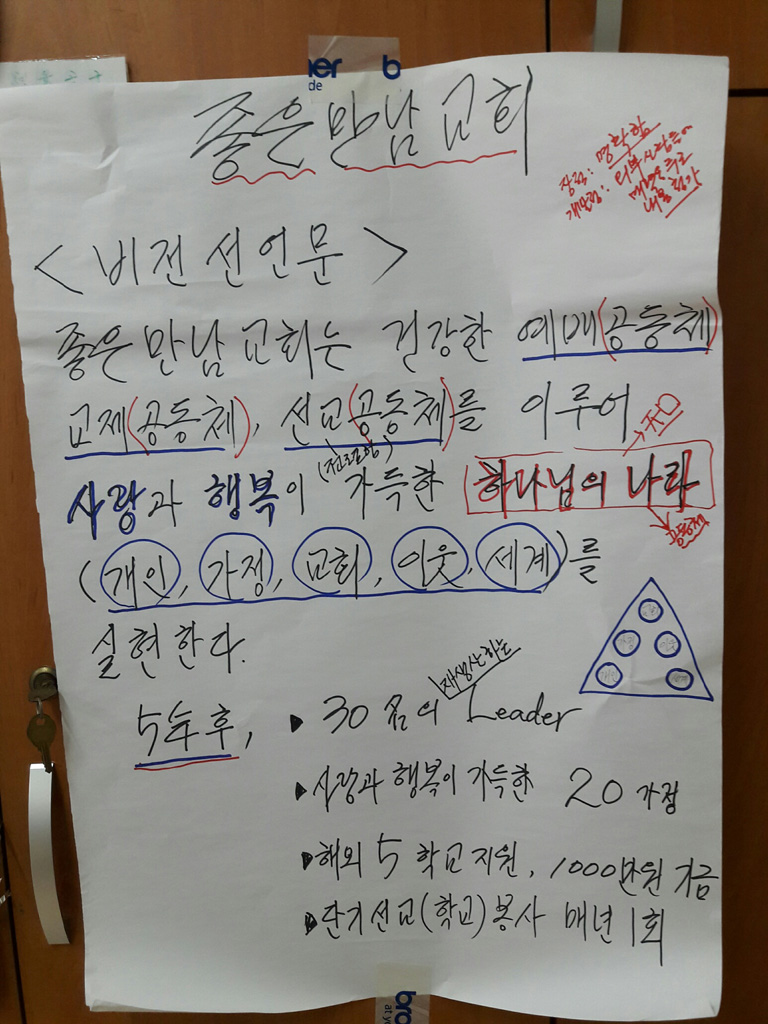 좋은만남교회
장점: 명확함
개발점:
<비전선언문>
좋은만남교회는 건강한 예배(공동체)
교제(공동체), 선교(공동체)를 이루어
사랑과 행복이 가득한 하나님의 나라
공동체
(개인, 가정, 교회, 이웃, 세계)를
실현한다.
재생산하는
5年후, 30명의 Leader
사랑과 행복이 가득한 20 가정
해외 5 학교지원, 1000만원 기금
단기선교(학교)봉사 매년 1회